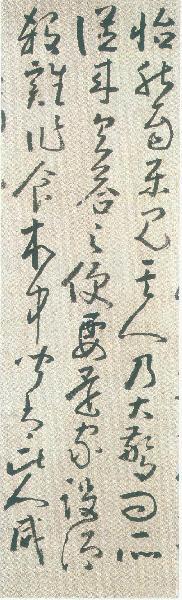 怡然自樂見漁人乃大驚問所
從來具答之便要還家設酒
殺雞作食村中聞有此人咸